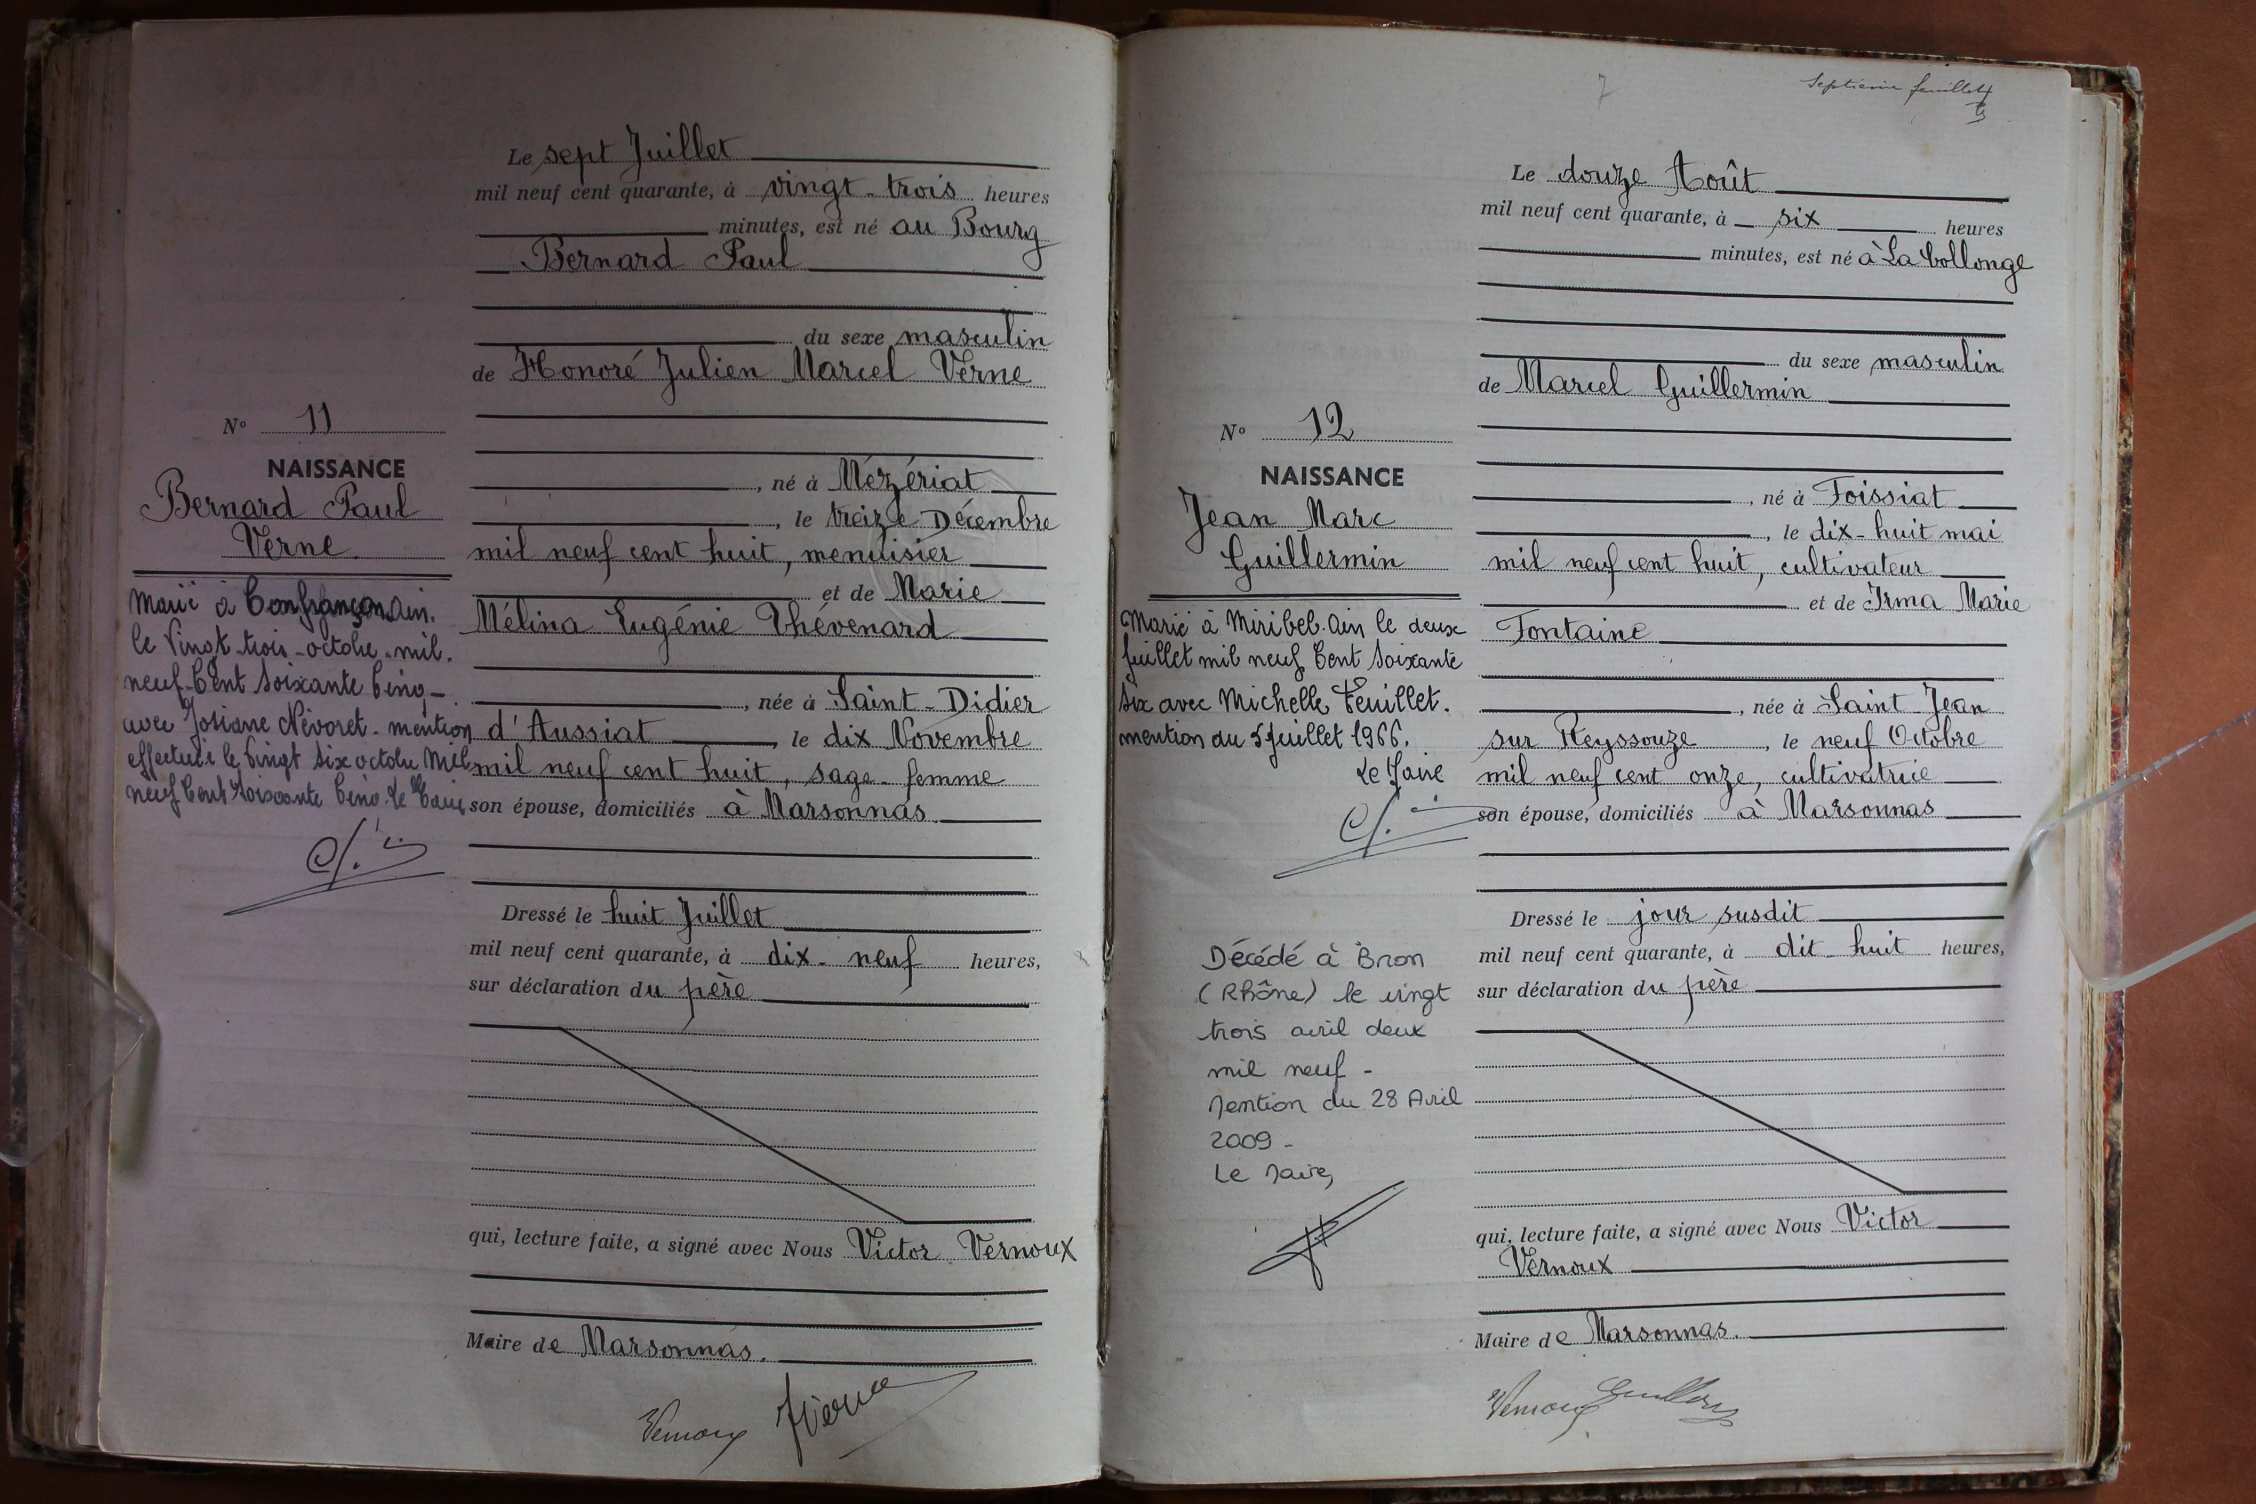 Le sept Juillet
mil neuf cent quarante, à vingt-trois heures
minutes, est né au Bourg
Bernard Paul
du sexe masculin
de Honoré Julien Marcel Verne
N° 11
NAISSANCE
Bernard Paul
Verne
, né à Mézériat
, le treize Décembre
mil neuf cent huit, menuisier
et de Marie
Mélina Eugénie Thévenard
, née à Saint-Didier
d'Aussiat, le dix Novembre
mil neuf cent huit, sage-femme
son épouse, domiciliés à Marsonnas
Marié à Confrançon Ain.
le Vingt-trois-octobre-mil.
neuf-Cent Soixante Cinq-
avec Josiane Névoret. mention
effectuée le Vingt Six octobre Mil
neuf Cent Soixante Cinq. Le Maire
Dressé le huit Juillet
mil neuf cent quarante, à dix-neuf heures,
sur déclaration du père
qui, lecture faite, a signé avec Nous Victor Vernoux
Maire de Marsonnas.
Vernoux Verne
7
Septième feuillet
Le douze Août
mil neuf cent quarante, à six heures
minutes, est né à La Collonge
du sexe masculin
de Marcel Guillermin
N° 12
NAISSANCE
Jean Marc
Guillermin
, né à Foissiat
, le dix-huit mai
mil neuf cent huit, cultivateur
et de Irma Marie
Fontaine
, née à Saint Jean
sur Reyssouze, le neuf Octobre
mil neuf cent onze, cultivatrice
son épouse, domiciliés à Marsonnas
Marié à Miribel. Ain le deux
Juillet mil neuf Cent Soixante
Six avec Michelle Feuillet.
mention du 5 Juillet 1966.
Le Maire
Décédé à Bron
(Rhône) le vingt
trois avril deux
mil neuf -
Mention du 28 Avril
2009 -
Le Maire,
Dressé le jour susdit
mil neuf cent quarante, à dit-huit heures,
sur déclaration du père
qui, lecture faite, a signé avec Nous Victor
Vernoux
Maire de Marsonnas.
Vernoux